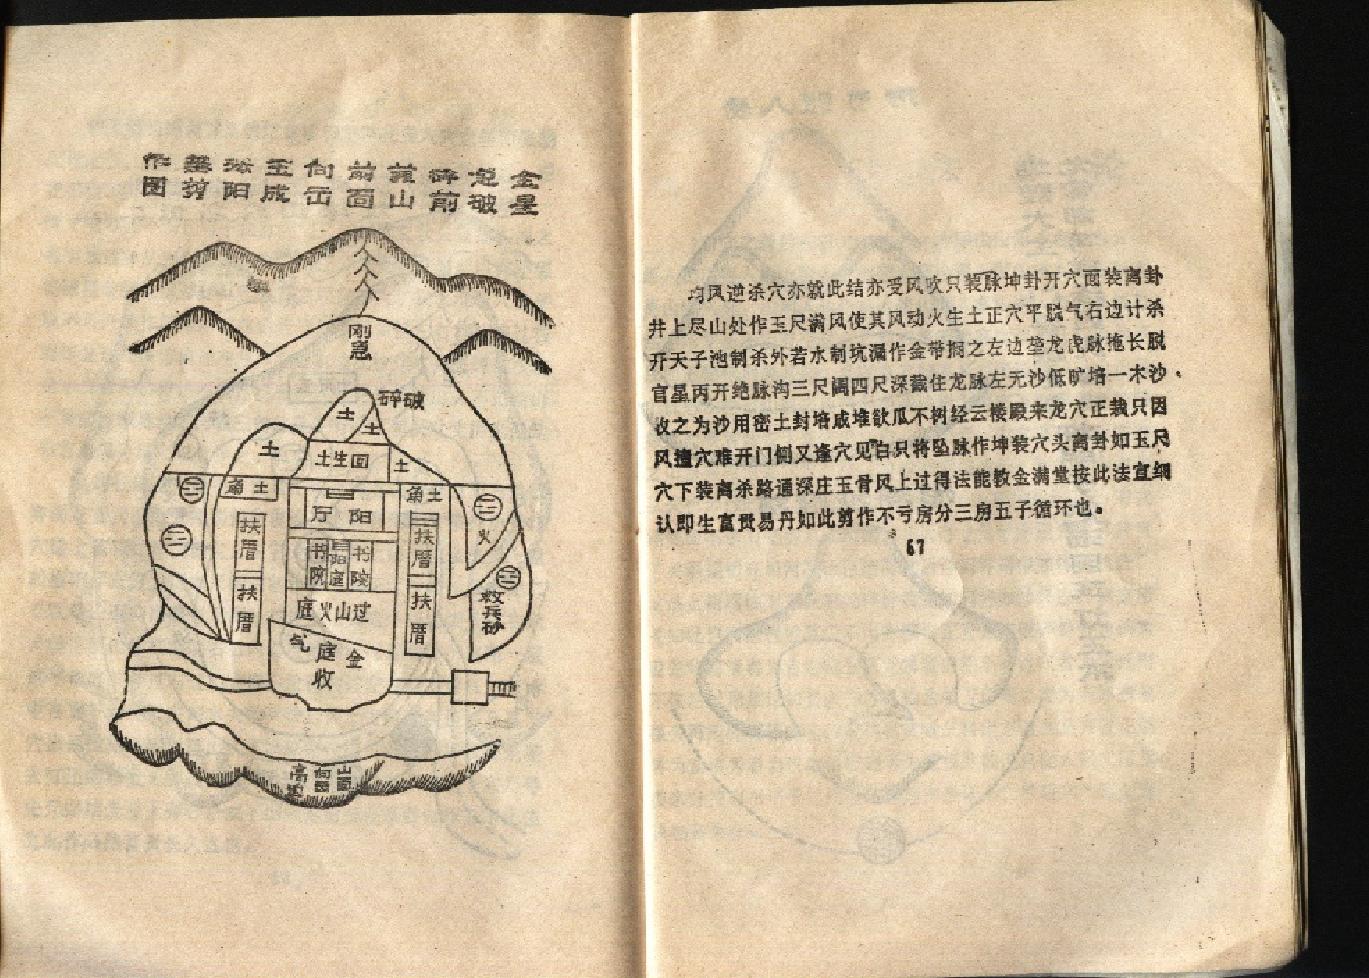 金星
急破
碎前
山
前面
向
成
阳
基剪
作图
刚急
碎破
土
土
土
土生回
土
角土
角土
厅阳
扶厝
扶厝
书院
阳庭
书院
火
扶厝
扶厝
庭火山过
救兵砂
气
庭收
金
高
向
山
均风逆杀穴亦就此结亦受风吹只装脉坤卦开穴面装离卦
井上尽山处作玉尺满风使其风动火生土正穴平脱气右边计杀
开天子池制杀外若水制坑漏作金带捆之左边垄龙虎脉拖长脱
官星丙开绝脉沟三尺阔四尺深截住龙脉左无沙低旷培一木沙
收之为沙用密土封培成堆欲瓜不朽经云楼殿来龙穴正栽只因
风撞穴难开门侧又逢穴见自只将坠脉作坤装穴头离卦如玉尺
穴下装离杀路通深庄玉骨风上过得法能教金满堂按此法宜细
认即生富贵易丹如此剪作不亏房分三房五子循环也。
67